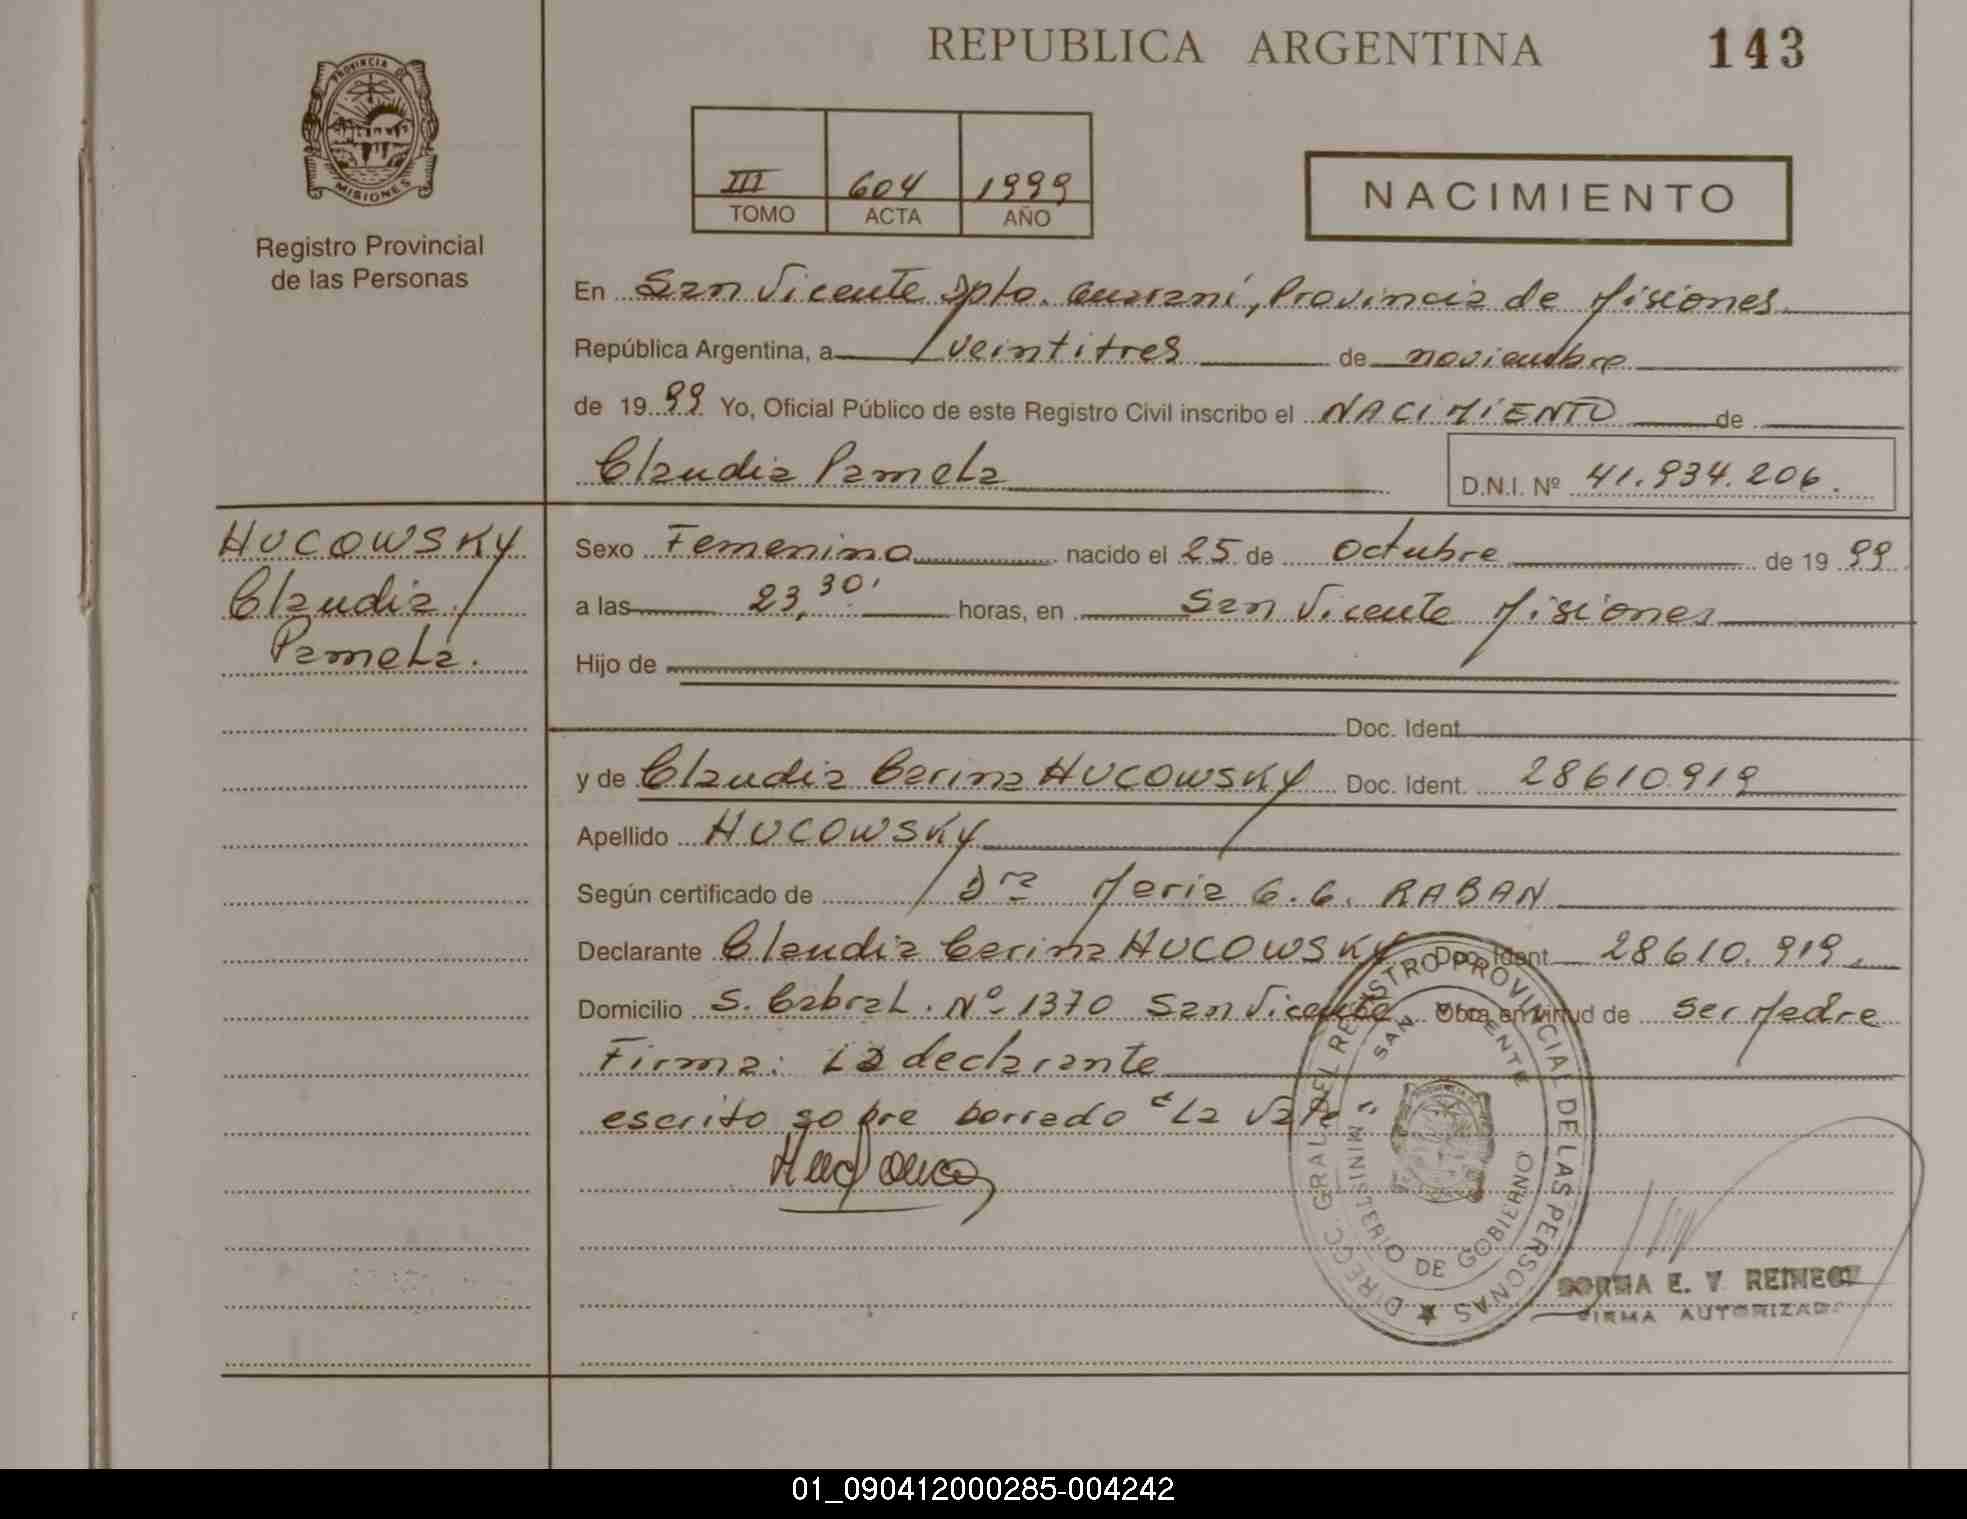 REPUBLICA ARGENTINA
143
PROVINCIA DE
MISIONES
Registro Provincial
de las Personas
III 604 1999
TOMO ACTA AÑO
NACIMIENTO
En San Vicente Dpto. Guaraní, Provincia de Misiones
República Argentina, a veintitres de noviembre
de 1999 Yo, Oficial Público de este Registro Civil inscribo el NACIMIENTO de
Claudia Pamela
D.N.I. Nº 41.934.206.
HUCOWSKY
Claudia
Pamela.
Sexo Femenino nacido el 25 de octubre de 1999
a las 23,30' horas, en San Vicente Misiones
Hijo de
Doc. Ident.
y de Claudia Carina HUCOWSKY Doc. Ident. 28610919
Apellido HUCOWSKY
Según certificado de Dra Maria G. G. RABAN
Declarante Claudia Carina HUCOWSKY Doc. Ident. 28610.919.
Domicilio S. Cabral. Nº 1370 San Vicente Obra en virtud de ser Madre
Firma: La declarante
escrito sobre borrado "La Vale"
DIRECC. GRAL. DEL REGISTRO PROVINCIAL DE LAS PERSONAS
SAN VICENTE
MINISTERIO DE GOBIERNO
E. V. 
FIRMA AUTORIZADA
01_090412000285-004242